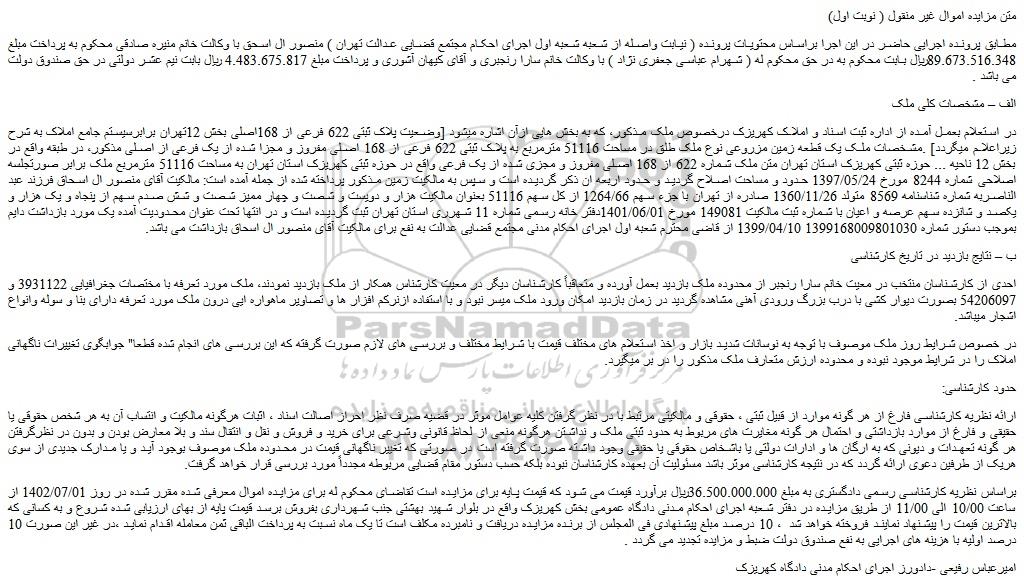 متن مزایده اموال غیر منقول ( نوبت اول)
مطابق پرونده اجرایی حاضر در این اجرا براساس محتویات پرونده ( نیابت واصله از شعبه شعبه اول اجرای احکام مجتمع قضایی عدالت تهران ) منصور ال اسحق با وکالت خانم منیره صادقی محکوم به پرداخت مبلغ
89.673.516.348ریال بابت محکوم به در حق محکوم له ( شهرام عباسی جعفری نژاد ) با وکالت خانم سارا رنجبری و آقای کیهان آشوری و پرداخت مبلغ 4.483.675.817 ریال بابت نیم عشر دولتی در حق صندوق دولت
می باشد .
الف – مشخصات کلی ملک
در استعلام بعمل آمده از اداره ثبت اسناد و املاک کهریزک درخصوص ملک مذکور، که به بخش هایی ازآن اشاره میشود [وضعیت پلاک ثبتی 622 فرعی از 168اصلی بخش 12تهران برابرسیستم جامع املاک به شرح
زیراعلام میگردد] .مشخصات ملک یک قطعه زمین مزروعی نوع ملک طلق در مساحت 51116 مترمربع به پلاک ثبتی 622 فرعی از 168 اصلی مفروز و مجزا شده از یک فرعی از اصلی مذکور، در طبقه واقع در
بخش 12 ناحیه ... حوزه ثبتی کهریزک استان تهران متن ملک شماره 622 از 168 اصلی مفروز و مجزی شده از یک فرعی واقع در حوزه ثبتی کهریزک استان تهران به مساحت 51116 مترمربع ملک برابر صورتجلسه
اصلاحی شماره 8244 مورخ 1397/05/24 حدود و مساحت اصلاح گردید و حدود اربعه آن ذکر گردیده است و سپس به مالکیت زمین مذکور پرداخته شده از جمله آمده است: مالکیت آقای منصور ال اسحاق فرزند عبد
الناصریه شماره شناسنامه 8569 متولد 1360/11/26 صادره از تهران با جزء سهم 1264/66 از کل سهم 51116 بعنوان مالکیت هزار و دویست و شصت و چهار ممیز شصت و شش صدم سهم از پنجاه و یک هزار و
یکصد و شانزده سهم عرصه و اعیان با شماره ثبت مالکیت 149081 مورخ 1401/06/01دفتر خانه رسمی شماره 11 شهرری استان تهران ثبت گردیده است و در انتها تحت عنوان محدودیت آمده یک مورد بازداشت دایم
بموجب دستور شماره 1399168009801030 1399/04/10 از قاضی محترم شعبه اول اجرای احکام مدنی مجتمع قضایی عدالت به نفع برای مالکیت آقای منصور ال اسحاق بازداشت می باشد.
ب – نتایج بازدید در تاریخ کارشناسی
احدی از کارشناسان منتخب در معیت خانم سارا رنجبر از محدوده ملک بازدید بعمل آورده و متعاقباً کارشناسان دیگر در معیت کارشناس همکار از ملک بازدید نمودند، ملک مورد تعرفه با مختصات جغرافیایی 3931122 و
54206097 بصورت دیوار کشی با درب بزرگ ورودی آهنی مشاهده گردید در زمان بازدید امکان ورود ملک میسر نبود و با استفاده ازنرکم افزار ها و تصاویر ماهواره ایی درون ملک مورد تعرفه دارای بنا و سوله وانواع
اشجار میباشد.
در خصوص شرایط روز ملک موصوف با توجه به نوسانات شدید بازار و اخذ استعلام های مختلف قیمت با شرایط مختلف و بررسی های لازم صورت گرفته که این بررسی های انجام شده قطعا" جوابگوی تغییرات ناگهانی
املاک را در شرایط موجود نبوده و محدوده ارزش متعارف ملک مذکور را در بر میگیرد.
ParsNamadData
مرکز فرآوری اطلاعات پارس نماد داده ها
حدود کارشناسی:
پایگاه اطلاع رسانی مناقصه و مزایده
ارائه نظریه کارشناسی فارغ از هر گونه موارد از قبیل ثبتی ، حقوقی و مالکیتی مرتبط با در نظر گرفتن کلیه عوامل موثر در قضیه صرف نظر احراز اصالت اسناد ، اثبات هرگونه مالکیت و انتساب آن به هر شخص حقوقی یا
حقیقی و فارغ از موارد بازداشتی و احتمال هر گونه مغایرت های مربوط به حدود ثبتی ملک و نداشتن هرگونه منعی از لحاظ قانونی و شرعی برای خرید و فروش و نقل و انتقال سند و بلا معارض بودن و بدون در نظرگرفتن
هر گونه تعهدات و دیونی که به ارگان ها و ادارات دولتی یا باشخاص حقوقی یا حقیقی وجود داشته صورت گرفته است در صورتی که تغییر ناگهانی قیمت در محدوده ملک موصوف بوجود آید و یا مدارک جدیدی از سوی
هریک از طرفین دعوی ارائه گردد که در نتیجه کارشناسی موثر باشد مسئولیت آن بعهده کارشناسان نبوده بلکه حسب دستور مقام قضایی مربوطه مجدداً مورد بررسی قرار خواهد گرفت.
براساس نظریه کارشناسی رسمی دادگستری به مبلغ 36.500.000.000ریال برآورد قیمت می شود که قیمت پایه برای مزایده است تقاضای محکوم له برای مزایده اموال معرفی شده مقرر شده در روز 1402/07/01 از
ساعت 10/00 الی 11/00 از طریق مزایده در دفتر شعبه اجرای احکام مدنی دادگاه عمومی بخش کهریزک واقع در بلوار شهید بهشتی جنب شهرداری بفروش برسد قیمت پایه از بهای ارزیابی شده شروع و به کسانی که
بالاترین قیمت را پیشنهاد نمایند فروخته خواهد شد ، 10 درصد مبلغ پیشنهادی فی المجلس از برنده مزایده دریافت و نامبرده مکلف است تا یک ماه نسبت به پرداخت الباقی ثمن معامله اقدام نماید ،در غیر این صورت 10
درصد اولیه با هزینه های اجرایی به نفع صندوق دولت ضبط و مزایده تجدید می گردد .
امیرعباس رفیعی -دادورز اجرای احکام مدنی دادگاه کهریزک